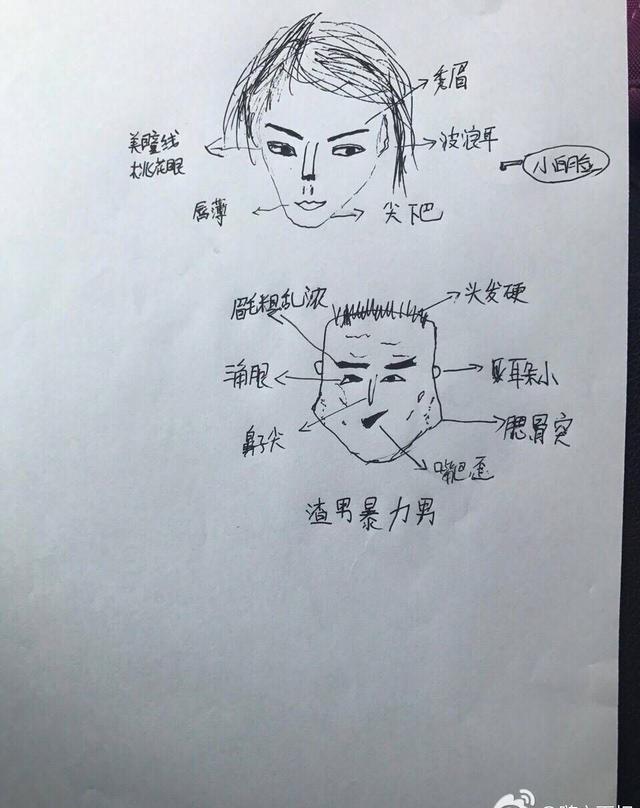 秃眉
美瞳线
桃花眼
波浪耳
小白脸
唇薄
尖下巴
眉毛粗乱浓
头发硬
三角眼
耳朵小
鼻子尖
腮骨突
嘴巴歪
渣男暴力男